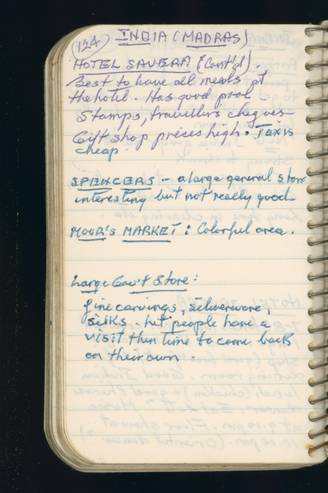 (124) INDIA (MADRAS)
HOTEL SAVERA (Cont'd).
Best to have all meals at
the hotel. Has good pool -
Stamps, travellers cheques -
Gift shop prices high. Taxis
cheap.
SPENCERS - a large general store
interesting but not really good.
MOUR'S MARKET: Colorful area.
Large Gov't Store:
fine carvings, silverware,
silks. Let people have a
visit then time to come back
on their own.